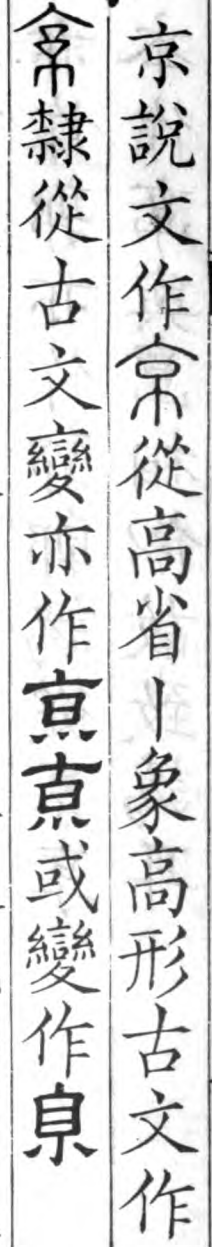 京說文作從高省丨象高形古文作
隸從古文變亦作亰或變作